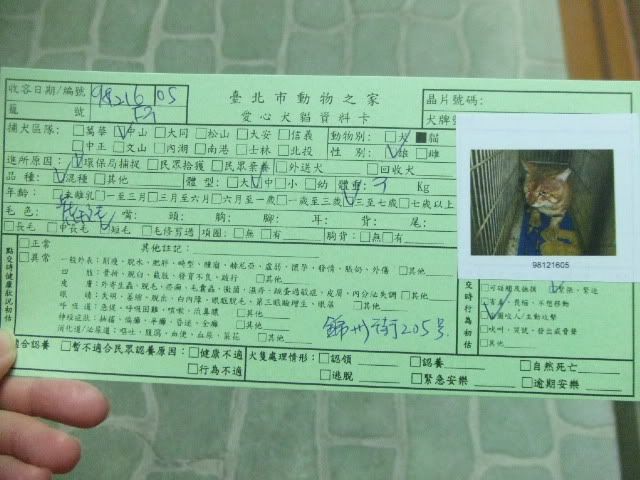 收容日期/編號 981216 05
臺北市動物之家
晶片號碼:
籠 號
愛心犬貓資料卡
犬牌號
捕犬區隊: □萬華 中山 □大同 □松山 □大安 □信義 動物別: □犬 ■貓
□中正 □文山 □內湖 □南港 □士林 □北投 性別: 雄 □雌
進所原因: 環保局捕捉 □民眾拾獲 □民眾棄養 □外送犬 □回收犬
品種: 混種 □其他 體型: □大 中 □小 □幼 體重: Kg
年齡: □未離乳 □一至三月 □三月至六月 □六月至一歲 □一歲至三歲 三至七歲 □七歲以上
毛色: 嘴: 頭: 胸: 腳: 耳: 背: 尾:
□長毛 □中長毛 短毛 □毛修剪過 項圈: □無 □有 胸背: □無 □有
98121605
點交時健康狀況初估
□正常
□異常
其他註記:
一般外表: 削瘦、脫水、肥胖、畸型、腫瘤、赫尼亞、虛弱、懷孕、發情、脹奶、外傷 □其他
四肢: 骨折、脫臼、截肢、發育不良、跛行 □其他
皮膚: 外寄生蟲、脫毛、疥癬、毛囊蟲、黴菌、濕疹、跳蚤過敏症、皮屑、內分泌失調 □其他
眼睛: 失明、萎縮、脫出、白內障、眼瞼脫毛、第三眼瞼增生、眼屎 □其他
呼吸道: 急促、呼吸困難、咳嗽、流鼻膿 □其他
神經症狀: 抽搐、偏癱、半癱、昏迷、全癱
消化道/泌尿道: 嘔吐、腹瀉、血便、血尿、菜花 □其他
錦州街205号
交時行為初估
不想移動
咬人/主動攻擊
□吠叫、哭號、發出威脅聲
□其他
適合認養 □暫不適合民眾認養原因: □健康不適
□行為不適
犬隻處理情形: □認領 □認養 □自然死亡
□逃脫 □緊急安樂 □逾期安樂